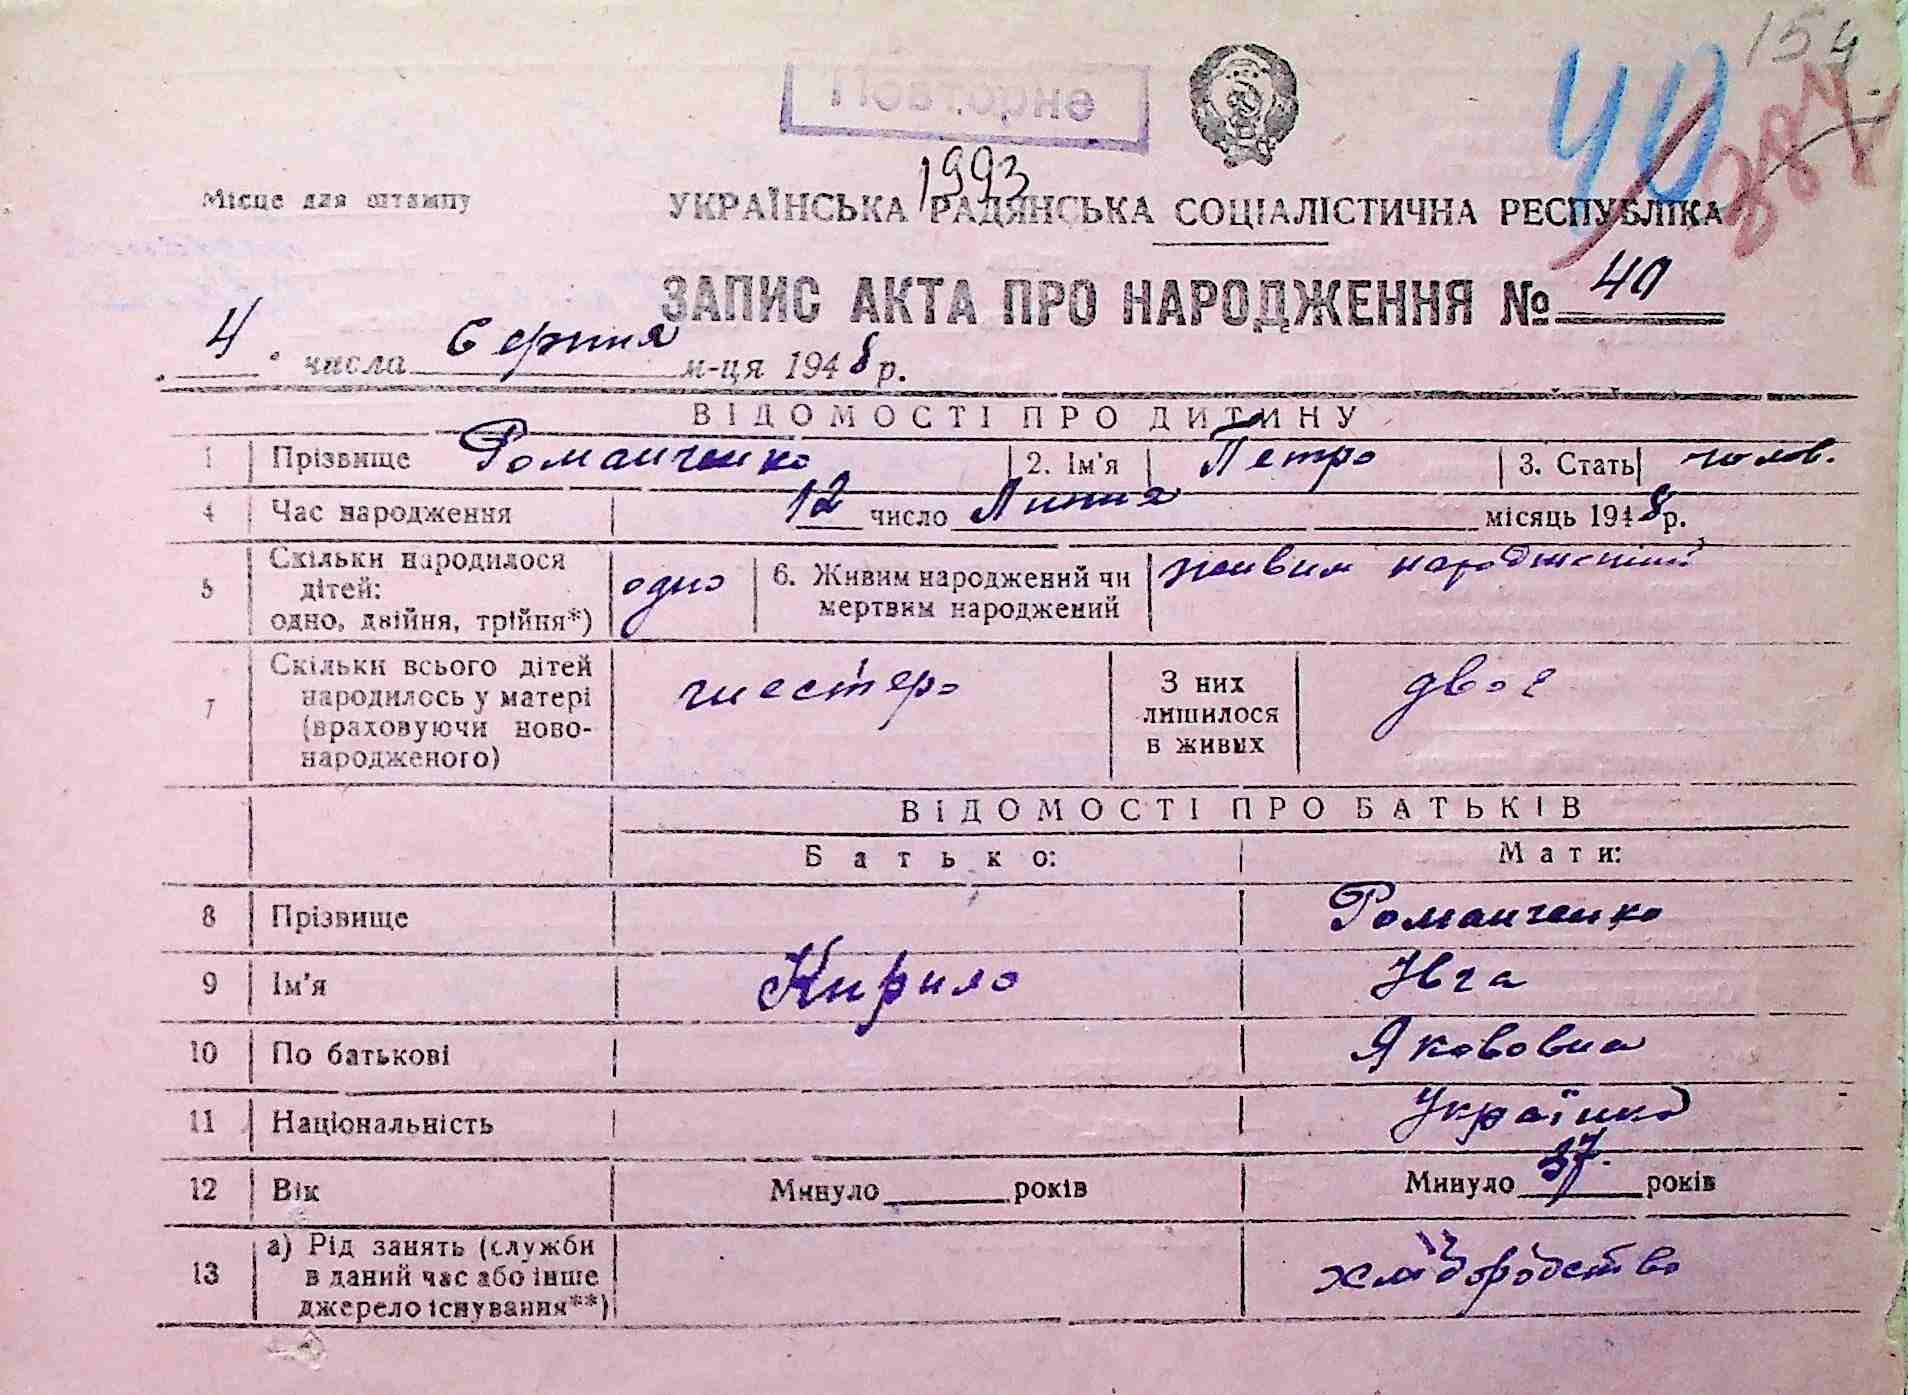 154
40
384
1993
Місце для штампу
УКРАЇНСЬКА РАДЯНСЬКА СОЦІАЛІСТИЧНА РЕСПУБЛІКА
ЗАПИС АКТА ПРО НАРОДЖЕННЯ № 40
4 числа Серпня м-ця 1948 р.
ВІДОМОСТІ ПРО ДИТИНУ
1 Прізвище Романченко 2. Ім'я Петро 3. Стать чолов.
4 Час народження 12 число Липня місяць 1948 р.
5 Скільки народилося дітей: одно, двійня, трійня*) одно 6. Живим народжений чи мертвим народжений живим народжений
7 Скільки всього дітей народилось у матері (враховуючи ново-народженого) шестеро З них лишилося в живих двоє
ВІДОМОСТІ ПРО БАТЬКІВ
Батько: Мати:
8 Прізвище Романченко
9 Ім'я Кирило Івга
10 По батькові Якововна
11 Національність Українка
12 Вік Минуло років Минуло 37. років
13 а) Рід занять (служби в даний час або інше джерело існування**)